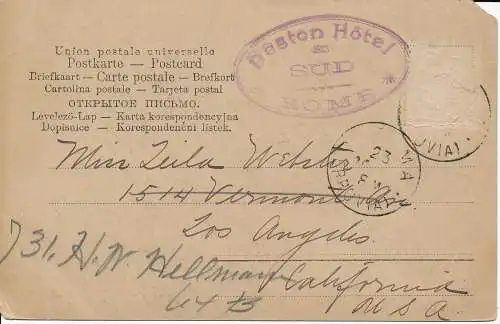 Union postale universelle
Postkarte — Postcard
Briefkaart — Carte postale — Brefkort
Cartolina postale — Tarjeta postal
ОТКРЫТОЕ ПИСЬМО.
Levelező-Lap — Karta korespondencyjna
Dopisnice — Korespondenční lístek.
Beston Hôtel
SUD
ROME
23
Miss Leila Webster
1514 Vermont Av.
Los Angeles
731. H. W. Hellman
California
U S A